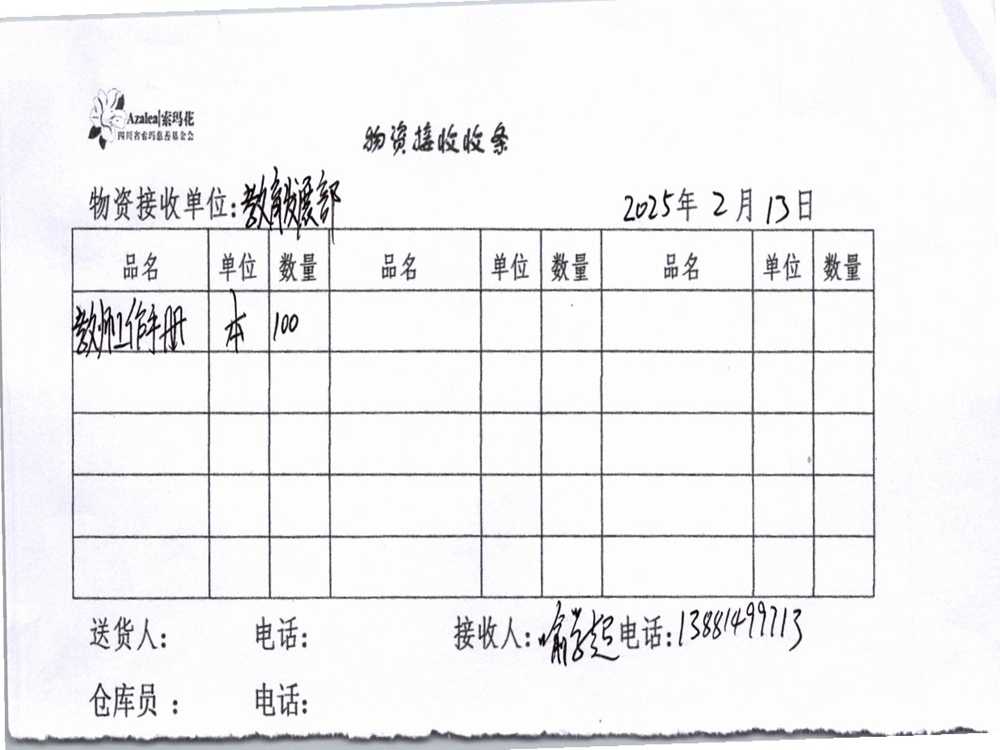 Azalea|索玛花
四川省索玛慈善基金会
物资接收收条
物资接收单位:教育发展部 2025年2月13日
品名 单位 数量 品名 单位 数量 品名 单位 数量
教师工作手册 本 100
送货人: 电话: 接收人:喻学超 电话:13881499713
仓库员: 电话: